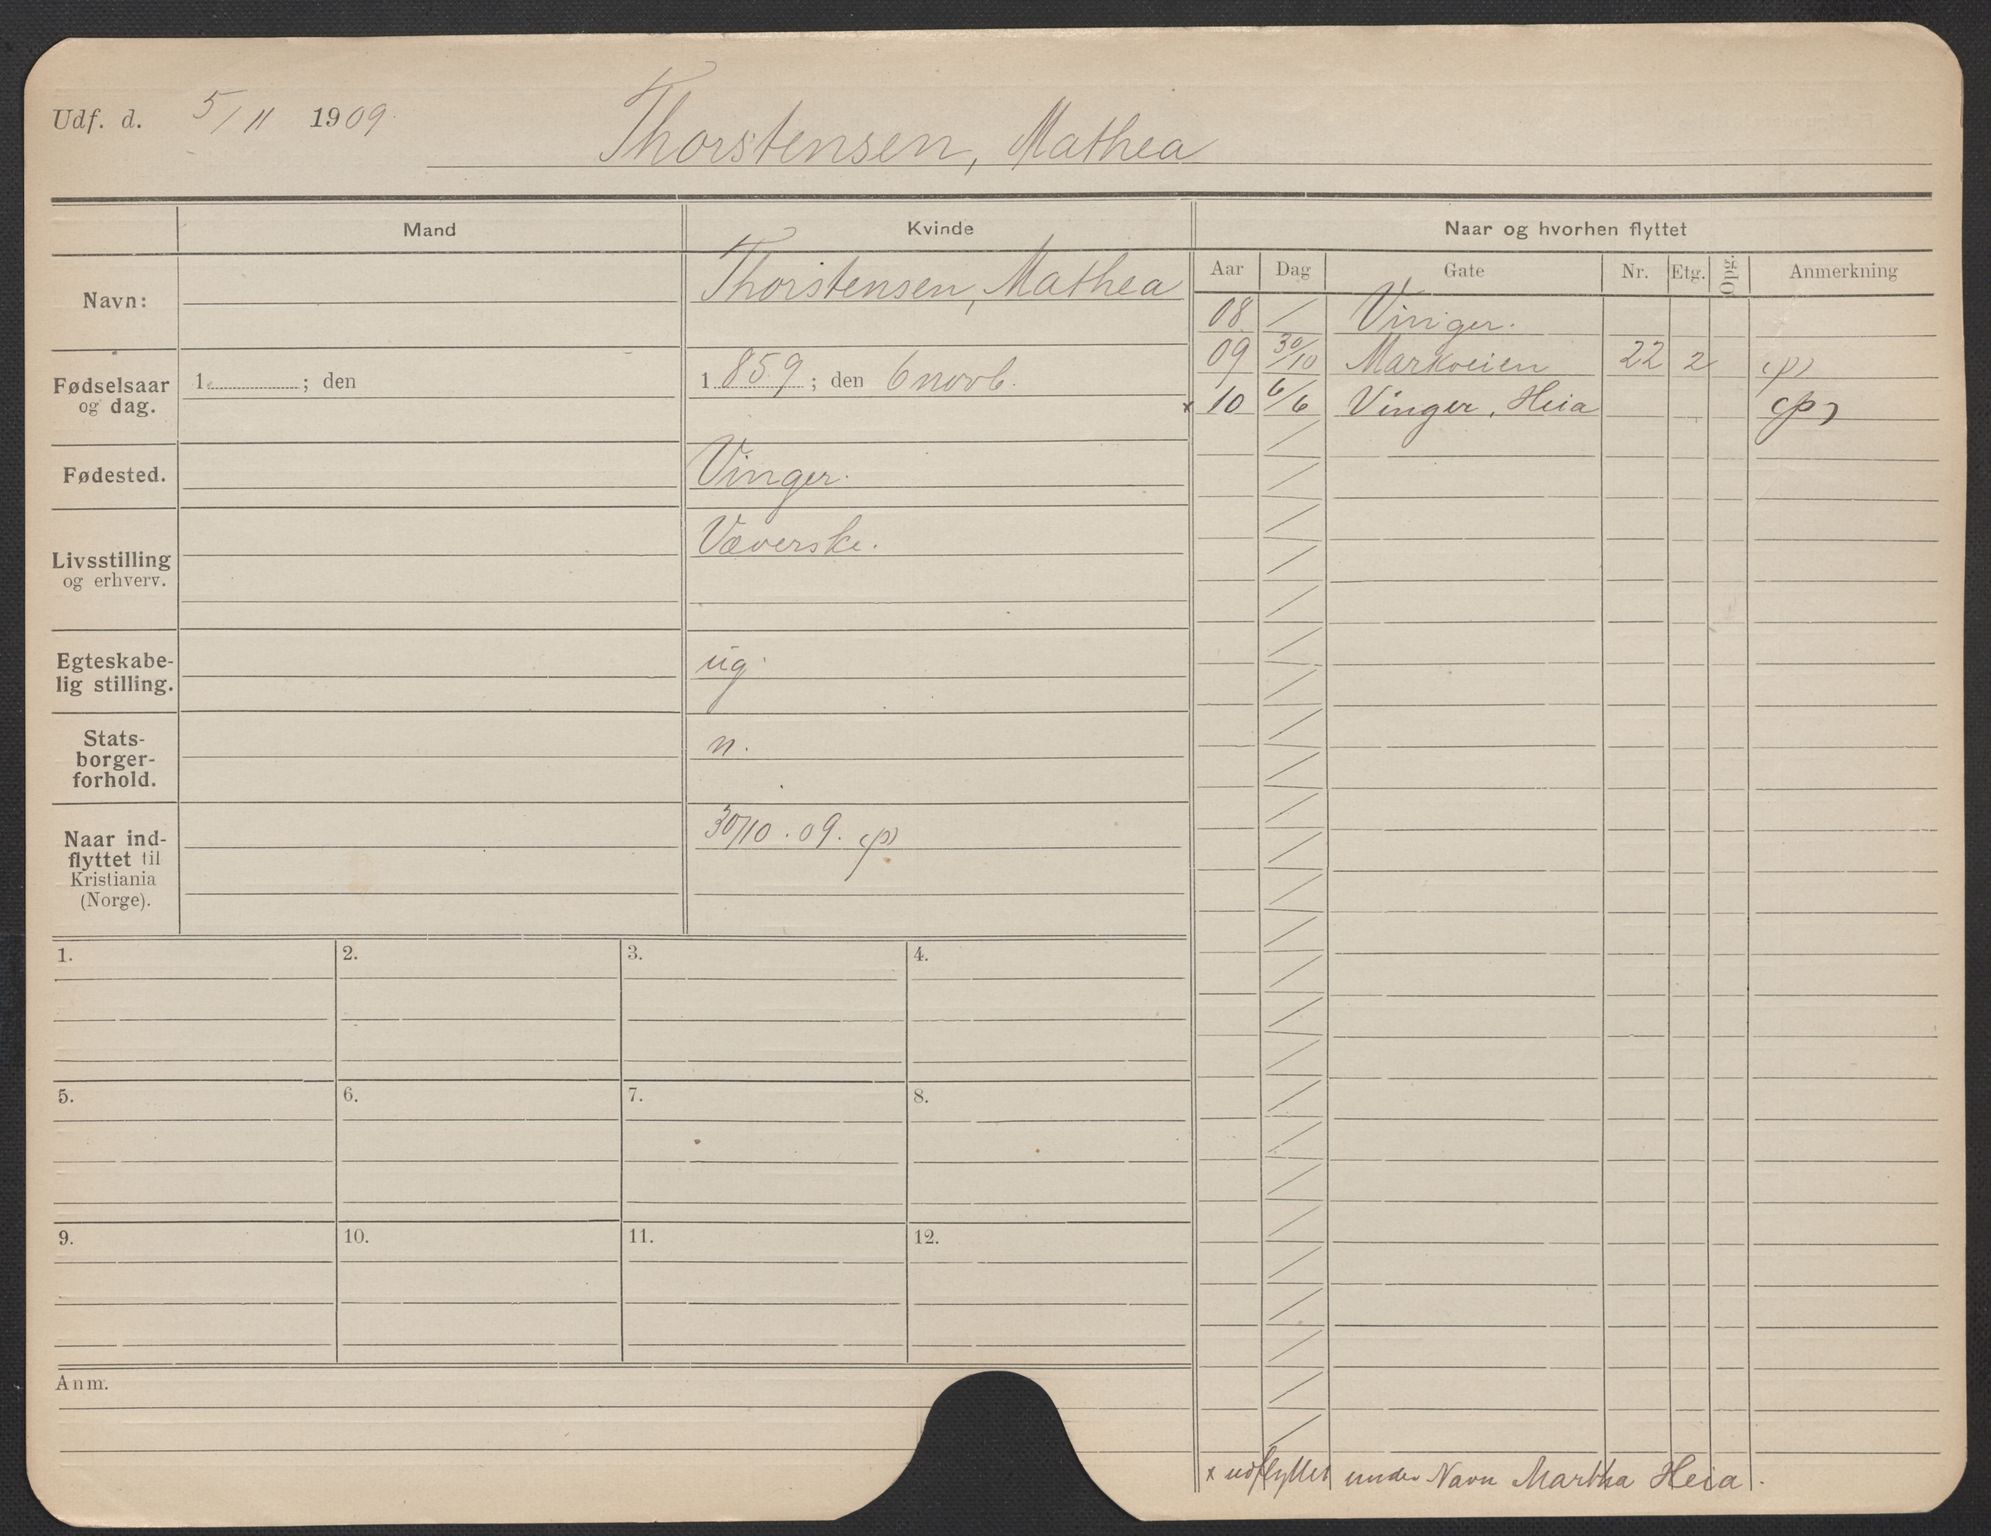 Udf. d. 5/11 1909.
Thorstensen, Mathea
Mand
Kvinde
Naar og hvorhen flyttet
Aar Dag Gate Nr. Etg. Opg. Anmerkning
Navn:
Thorstensen, Mathea
08 / Vinger.
09 30/10 Markveien 22 2 (p)
× 10 6/6 Vinger, Heia (p)
Fødselsaar
og dag.
1 ; den
1859 ; den 6 novb.
Fødested.
Vinger.
Livsstilling
og erhverv.
Væverske.
Egteskabe-
lig stilling.
ug.
Stats-
borger-
forhold.
n.
Naar ind-
flyttet til
Kristiania
(Norge).
30/10. 09. (p)
1. 2. 3. 4.
5. 6. 7. 8.
9. 10. 11. 12.
Anm.
× udflyttet under Navn Martha Heia.